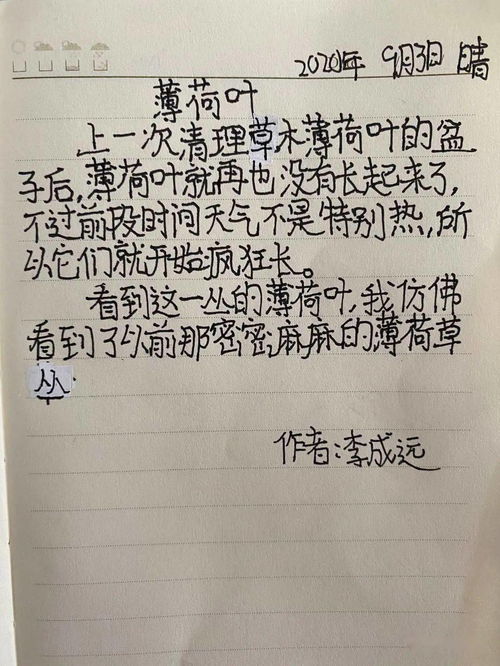 2020年 9月3日 晴
薄荷叶
上一次清理草木薄荷叶的盆
子后,薄荷叶就再也没有长起来了,
不过前段时间天气不是特别热,所
以它们就开始疯狂长。
看到这一丛的薄荷叶,我仿佛
看到了以前那密密麻麻的薄荷草
丛
作者:李成远